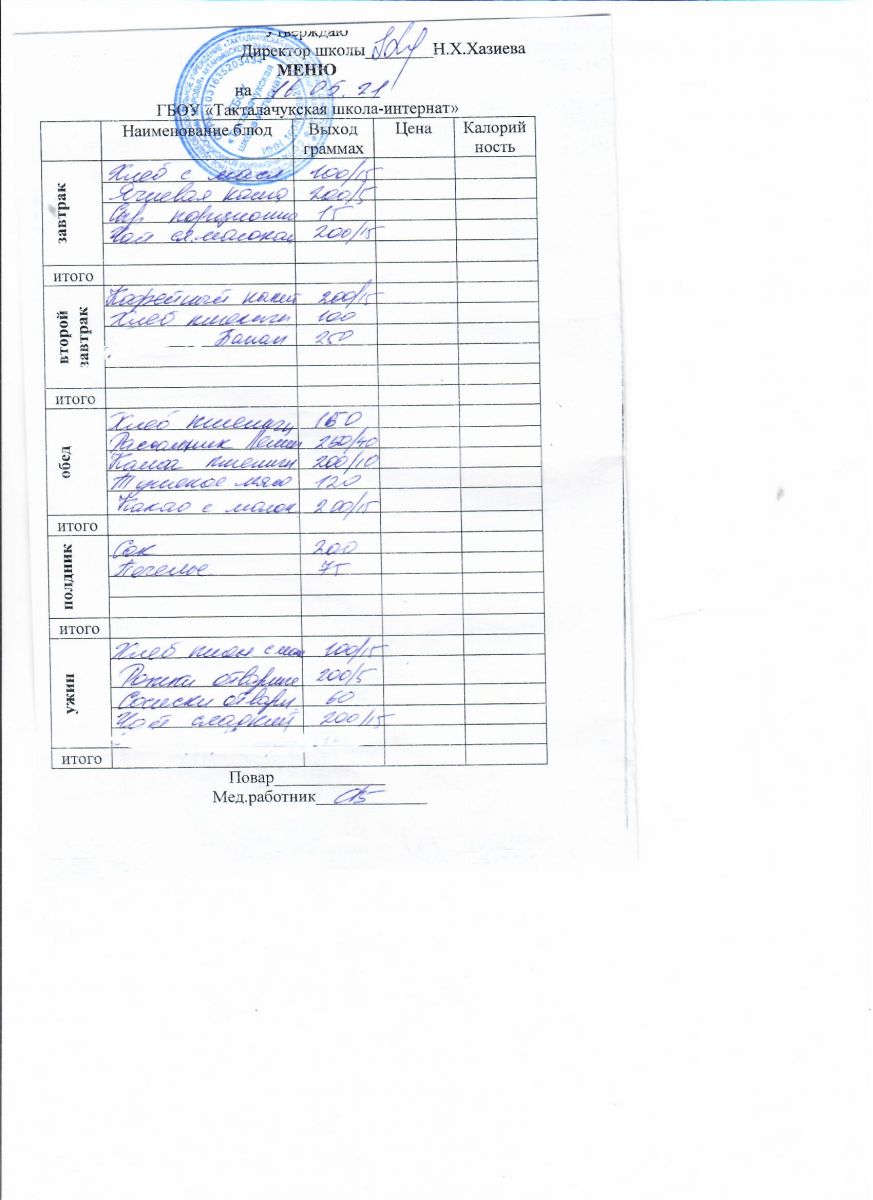 Утверждаю
Директор школы Н.Х.Хазиева
МЕНЮ
на 16.05.21
ГБОУ «Такталачукская школа-интернат»
Наименование блюд Выход граммах Цена Калорий ность
завтрак
Хлеб с масл 100/15
Ячневая каша 200/5
Сыр порционно 15
Чай сл.молоком 200/15
итого
второй завтрак
Кофейный напит 200/15
Хлеб пшеничн 100
Банан 250
итого
обед
Хлеб пшеничн 150
Рассольник Ленин 250/40
Каша пшеничн 200/10
Тушеное мясо 120
Какао с молок 200/15
итого
полдник
Сок 200
Печенье 75
итого
ужин
Хлеб пшен с мас 100/15
Рожки отварные 200/5
Сосиски отварн 60
Чай сладкий 200/15
итого
Повар
Мед.работник